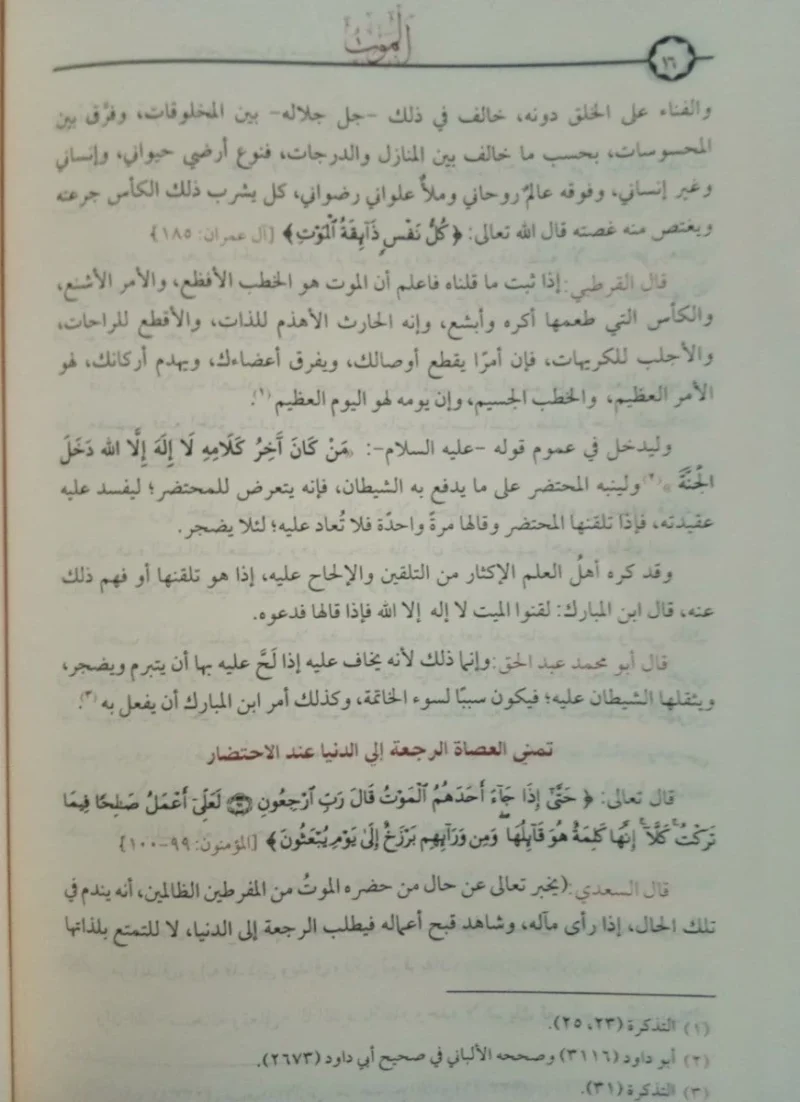 الموت
١٦
والفناء على الخلق دونه، خالف في ذلك -جل جلاله- بين المخلوقات، وفرَّق بين
المحسوسات، بحسب ما خالف بين المنازل والدرجات، فنوع أرضي حيواني، وإنساني
وغير إنساني، وفوقه عالمٌ روحاني وملأٌ علواني رضواني، كل يشرب ذلك الكأس جرعته
ويغتص منه غصته قال الله تعالى: ﴿كُلُّ نَفْسٍ ذَآئِقَةُ ٱلْمَوْتِ﴾ [آل عمران: ١٨٥]
قال القرطبي: إذا ثبت ما قلناه فاعلم أن الموت هو الخطب الأفظع، والأمر الأشنع،
والكأس التي طعمها أكره وأبشع، وإنه الحارث الأهذم للذات، والأقطع للراحات،
والأجلب للكريهات، فإن أمرًا يقطع أوصالك، ويفرق أعضاءك، ويهدم أركانك، لهو
الأمر العظيم، والخطب الجسيم، وإن يومه لهو اليوم العظيم (١).
وليدخل في عموم قوله -عليه السلام-: «مَنْ كَانَ آخِرُ كَلَامِهِ لَا إِلَهَ إِلَّا الله دَخَلَ
الجُنةَّ» (٢) ولينبه المحتضر على ما يدفع به الشيطان، فإنه يتعرض للمحتضر؛ ليفسد عليه
عقيدته، فإذا تلقنها المحتضر وقالها مرةً واحدًة فلا تُعاد عليه؛ لئلا يضجر.
وقد كره أهلُ العلم الإكثار من التلقين والإلحاح عليه، إذا هو تلقنها أو فهم ذلك
عنه، قال ابن المبارك: لقنوا الميت لا إله إلا الله فإذا قالها فدعوه.
قال أبو محمد عبد الحق: وإنما ذلك لأنه يخاف عليه إذا لَحَّ عليه بها أن يتبرم ويضجر،
ويثقلها الشيطان عليه؛ فيكون سببًا لسوء الخاتمة، وكذلك أمر ابن المبارك أن يفعل به (٣).
تمني العصاة الرجعة إلي الدنيا عند الاحتضار
قال تعالى: ﴿حَتَّىٰٓ إِذَا جَآءَ أَحَدَهُمُ ٱلْمَوْتُ قَالَ رَبِّ ٱرْجِعُونِ ۝٩٩ لَعَلِّىٓ أَعْمَلُ صَٰلِحًا فِيمَا
تَرَكْتُ ۚ كَلَّآ ۚ إِنَّهَا كَلِمَةٌ هُوَ قَآئِلُهَا ۖ وَمِن وَرَآئِهِم بَرْزَخٌ إِلَىٰ يَوْمِ يُبْعَثُونَ﴾ [المؤمنون: ٩٩-١٠٠]
قال السعدي: (يخبر تعالى عن حال من حضره الموتُ من المفرطين الظالمين، أنه يندم في
تلك الحال، إذا رأى مآله، وشاهد قبح أعماله فيطلب الرجعة إلى الدنيا، لا للتمتع بلذاتها
(١) التذكرة (٢٣، ٢٥).
(٢) أبو داود (٣١١٦) وصححه الألباني في صحيح أبي داود (٢٦٧٣).
(٣) التذكرة (٣١).